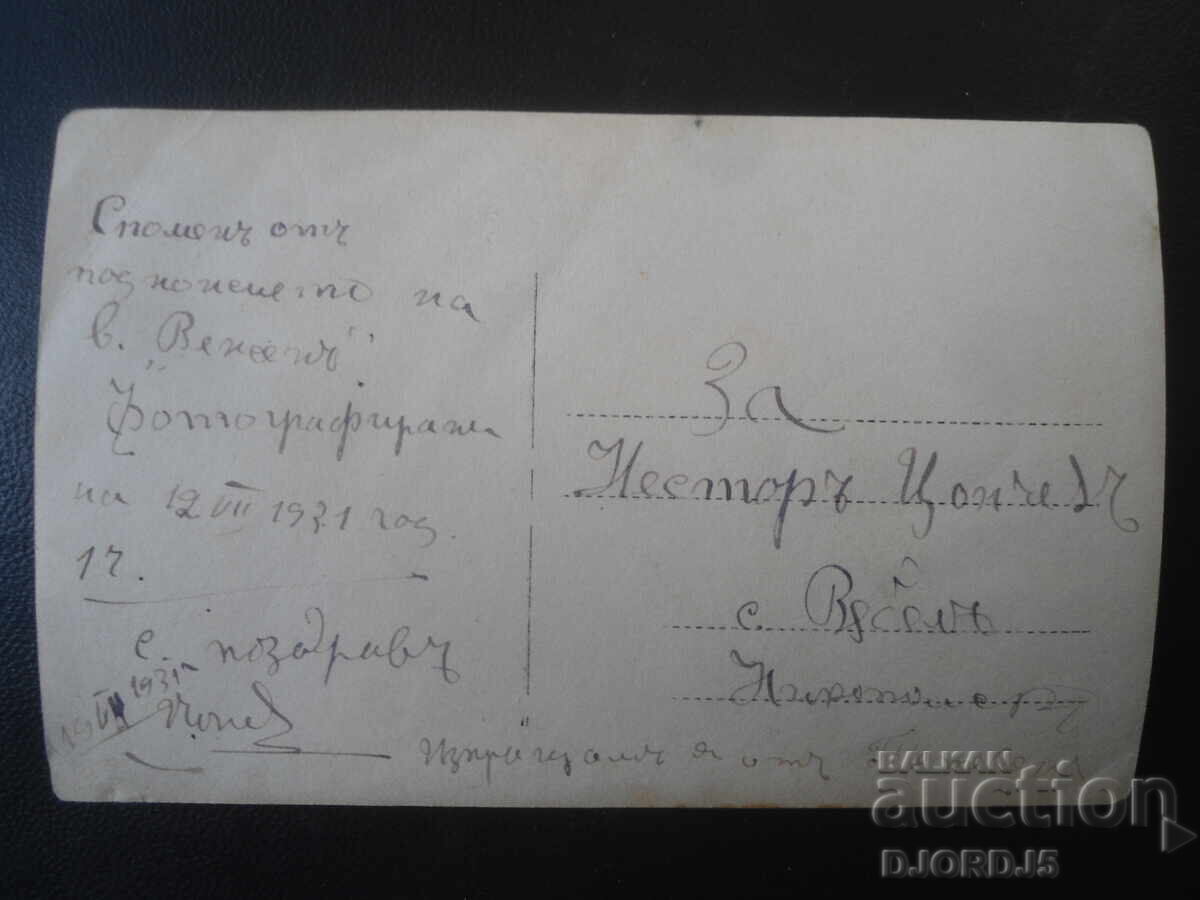 Споменъ отъ
подножието на
в. "Венецъ"
Фотографирана
на 12 VII 1931 год.
1 ч.
с. поздравъ
19 VII 1931 г.
За
Несторъ Цончевъ
с.
Изпращамъ я отъ
BALKAN
auction
DJORDJ5